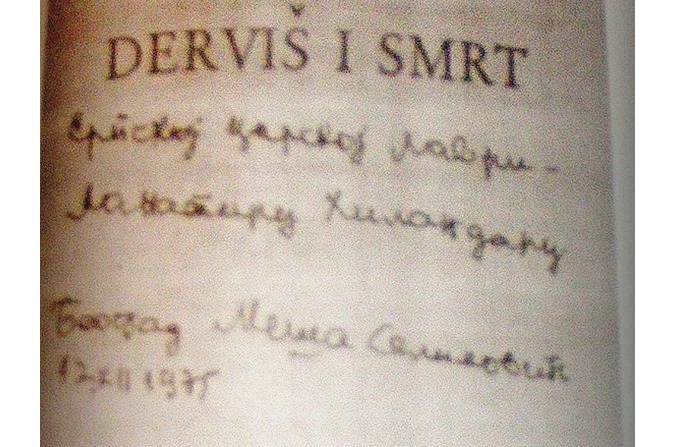 DERVIŠ I SMRT
Српској царској лаври –
Манастиру Хиландару
Београд Меша Селимовић
12.XII 1975